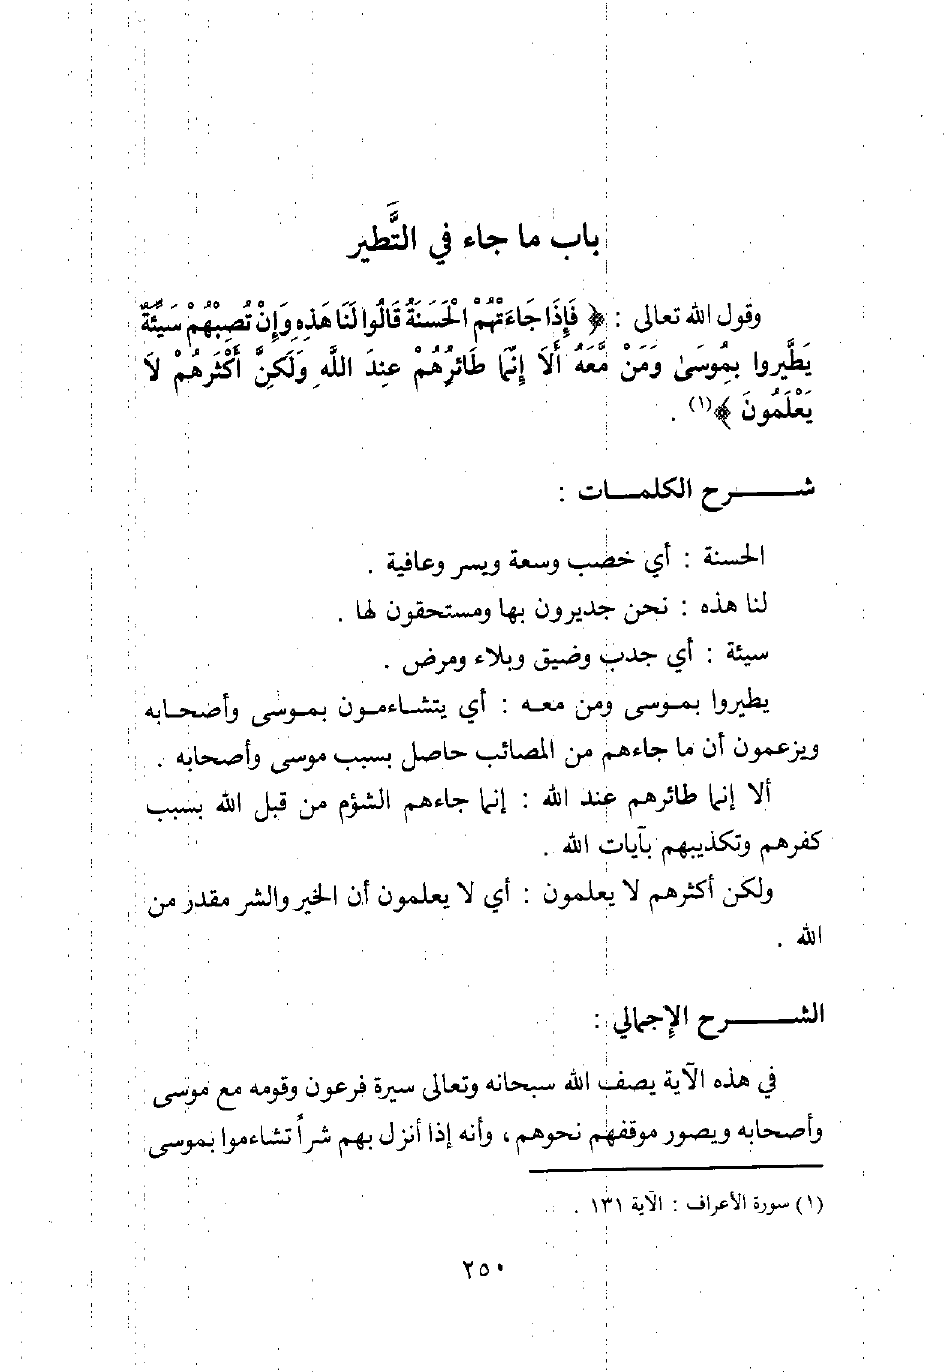 باب ما جاء في التَّطير
وقول الله تعالى : ﴿ فَإِذَا جَاءَتْهُمْ الْحَسَنَةُ قَالُوا لَنَا هَذِهِ وَإِنْ تُصِبْهُمْ سَيِّئَةٌ
يَطَّيروا بِمُوسَىٰ وَمَنْ مَّعَهُ أَلَا إِنَّمَا طَائرُهُمْ عِندَ اللَّهِ وَلَكِنَّ أَكْثَرَهُمْ لَا
يَعْلَمُونَ ﴾(١) .
شـــــرح الكلمـــات :
الحسنة : أي خصب وسعة ويسر وعافية .
لنا هذه : نحن جديرون بها ومستحقون لها .
سيئة : أي جدب وضيق وبلاء ومرض .
يطيروا بمـوسى ومن معـه : أي يتشـاءمـون بمـوسى وأصحـابه
ويزعمون أن ما جاءهم من المصائب حاصل بسبب موسى وأصحابه .
ألا إنما طائرهم عند الله : إنما جاءهم الشؤم من قبل الله بسبب
كفرهم وتكذيبهم بآيات الله .
ولكن أكثرهم لا يعلمون : أي لا يعلمون أن الخير والشر مقدر من
الله .
الشـــــرح الإجمالي :
في هذه الآية يصف الله سبحانه وتعالى سيرة فرعون وقومه مع موسى
وأصحابه ويصور موقفهم نحوهم ، وأنه إذا أنزل بهم شراً تشاءموا بموسى
(١) سورة الأعراف : الآية ١٣١ .
٢٥٠